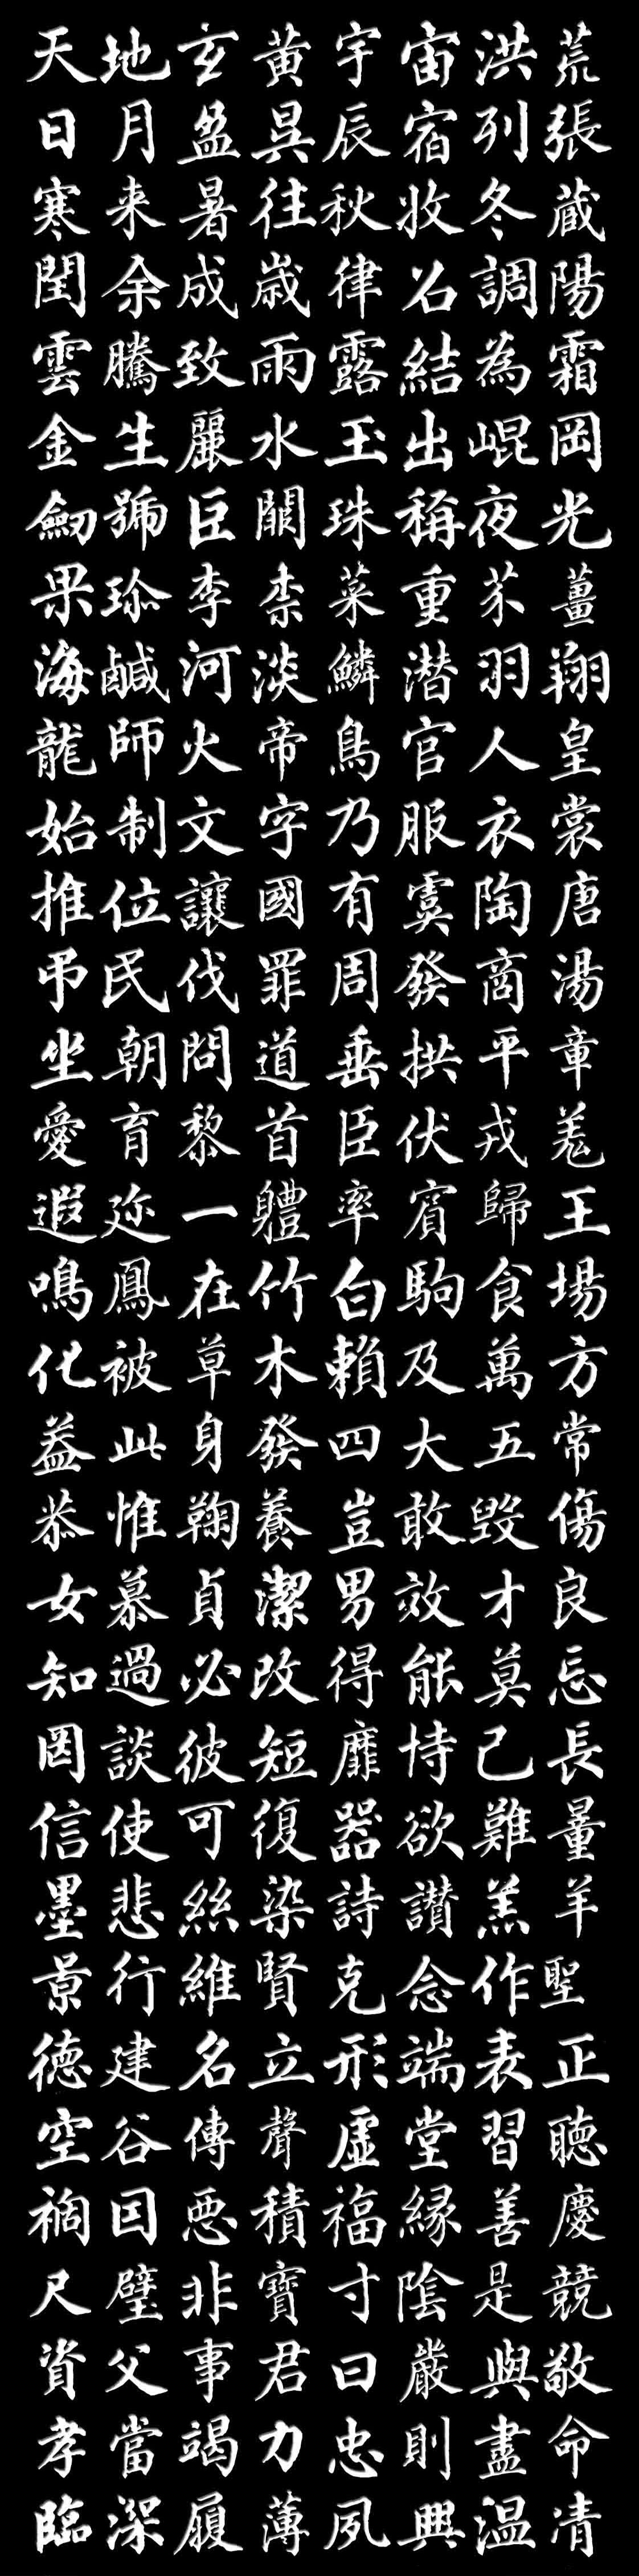 天地玄黃宇宙洪荒
日月盈昃辰宿列張
寒来暑往秋收冬蔵
閏余成歳律召調陽
雲騰致雨露結為霜
金生麗水玉出崐岡
劒號巨闕珠稱夜光
果珎李柰菜重芥薑
海鹹河淡鱗潛羽翔
龍師火帝鳥官人皇
始制文字乃服衣裳
推位讓國有虞陶唐
弔民伐罪周發商湯
坐朝問道垂拱平章
愛育黎首臣伏戎羌
遐迩一體率賓歸王
鳴鳳在竹白駒食場
化被草木賴及萬方
盖此身發四大五常
恭惟鞠養豈敢毀傷
女慕貞潔男效才良
知過必改得能莫忘
罔談彼短靡恃己長
信使可復器欲難量
墨悲絲染詩讃羔羊
景行維賢克念作聖
德建名立形端表正
空谷傳聲虛堂習聽
禍因惡積福緣善慶
尺璧非寶寸陰是競
資父事君曰嚴與敬
孝當竭力忠則盡命
臨深履薄夙興温凊